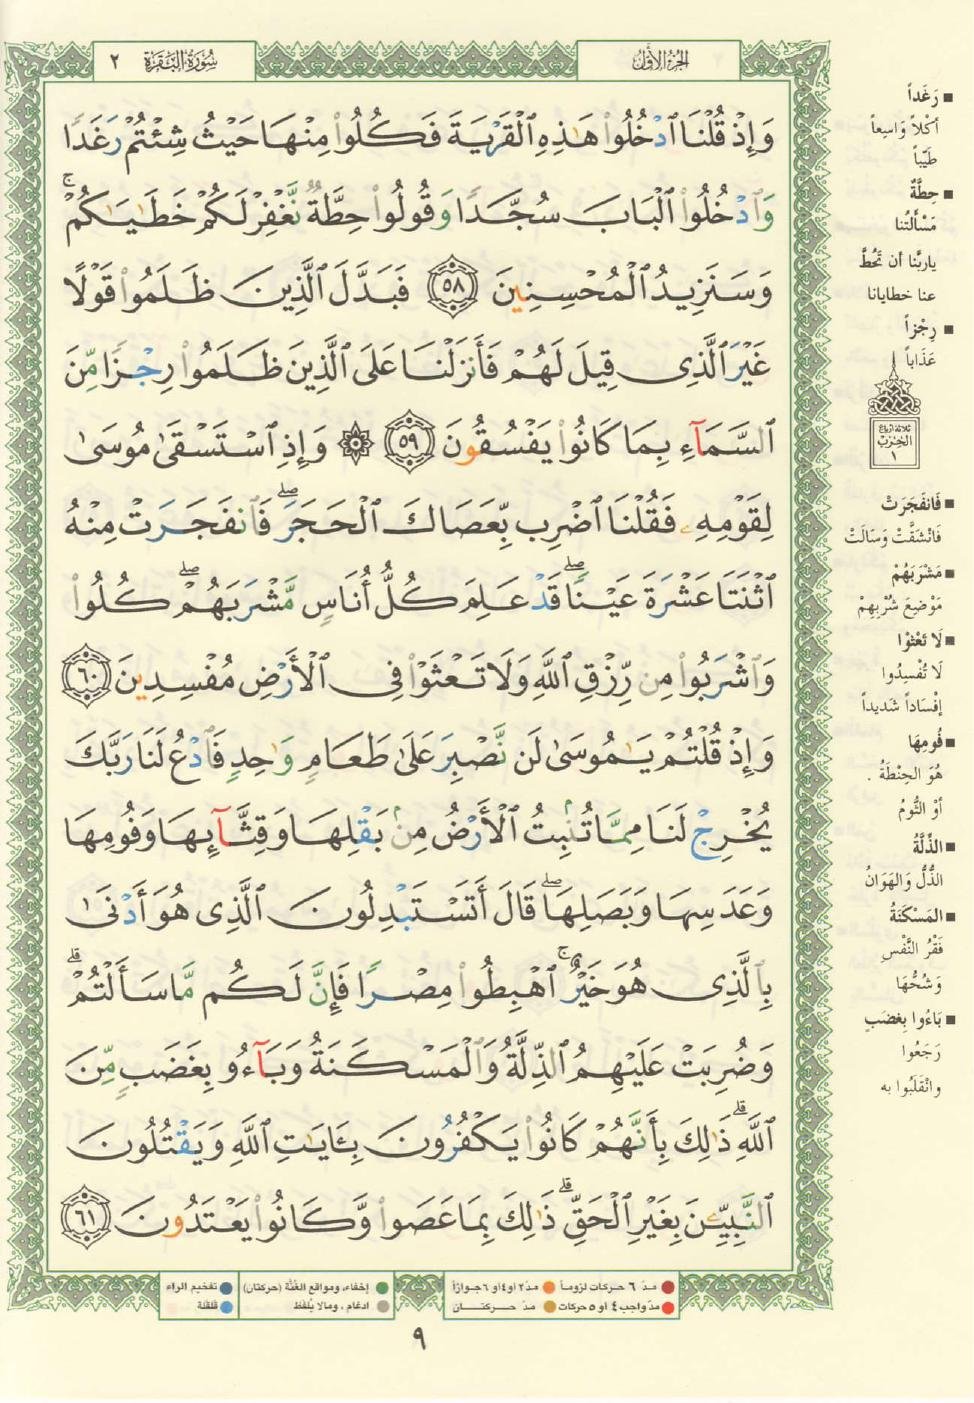 سُورَةُ البَقَرَة ٢
الجُزْءُ الأَوَّلُ
وَإِذْ قُلْنَا ٱدْخُلُوا۟ هَـٰذِهِ ٱلْقَرْيَةَ فَكُلُوا۟ مِنْهَا حَيْثُ شِئْتُمْ رَغَدًا
وَٱدْخُلُوا۟ ٱلْبَابَ سُجَّدًا وَقُولُوا۟ حِطَّةٌ نَّغْفِرْ لَكُمْ خَطَـٰيَـٰكُمْ ۚ
وَسَنَزِيدُ ٱلْمُحْسِنِينَ ٥٨ فَبَدَّلَ ٱلَّذِينَ ظَلَمُوا۟ قَوْلًا
غَيْرَ ٱلَّذِى قِيلَ لَهُمْ فَأَنزَلْنَا عَلَى ٱلَّذِينَ ظَلَمُوا۟ رِجْزًا مِّنَ
ٱلسَّمَآءِ بِمَا كَانُوا۟ يَفْسُقُونَ ٥٩ ۞ وَإِذِ ٱسْتَسْقَىٰ مُوسَىٰ
لِقَوْمِهِۦ فَقُلْنَا ٱضْرِب بِّعَصَاكَ ٱلْحَجَرَ ۖ فَٱنفَجَرَتْ مِنْهُ
ٱثْنَتَا عَشْرَةَ عَيْنًا ۖ قَدْ عَلِمَ كُلُّ أُنَاسٍ مَّشْرَبَهُمْ ۖ كُلُوا۟
وَٱشْرَبُوا۟ مِن رِّزْقِ ٱللَّهِ وَلَا تَعْثَوْا۟ فِى ٱلْأَرْضِ مُفْسِدِينَ ٦٠
وَإِذْ قُلْتُمْ يَـٰمُوسَىٰ لَن نَّصْبِرَ عَلَىٰ طَعَامٍ وَٰحِدٍ فَٱدْعُ لَنَا رَبَّكَ
يُخْرِجْ لَنَا مِمَّا تُنۢبِتُ ٱلْأَرْضُ مِنۢ بَقْلِهَا وَقِثَّآئِهَا وَفُومِهَا
وَعَدَسِهَا وَبَصَلِهَا ۖ قَالَ أَتَسْتَبْدِلُونَ ٱلَّذِى هُوَ أَدْنَىٰ
بِٱلَّذِى هُوَ خَيْرٌ ۚ ٱهْبِطُوا۟ مِصْرًا فَإِنَّ لَكُم مَّا سَأَلْتُمْ ۗ
وَضُرِبَتْ عَلَيْهِمُ ٱلذِّلَّةُ وَٱلْمَسْكَنَةُ وَبَآءُو بِغَضَبٍ مِّنَ
ٱللَّهِ ۗ ذَٰلِكَ بِأَنَّهُمْ كَانُوا۟ يَكْفُرُونَ بِـَٔايَـٰتِ ٱللَّهِ وَيَقْتُلُونَ
ٱلنَّبِيِّـۧنَ بِغَيْرِ ٱلْحَقِّ ۗ ذَٰلِكَ بِمَا عَصَوا۟ وَّكَانُوا۟ يَعْتَدُونَ ٦١
رَغَداً
أكْلاً وَاسِعاً
طَيِّباً
حِطَّةٌ
مَسْأَلَتُنا
ياربَّنا أن تَحُطَّ
عنا خطايانا
رِجْزاً
عَذَاباً
ثلاثة أرباع
الحِزْب
١
فَانفَجَرَتْ
فَانْشَقَّتْ وَسَالَتْ
مَشْرَبَهُمْ
مَوْضِعَ شُرْبِهِمْ
لَا تَعْثَوْا
لَا تُفْسِدُوا
إفْسَاداً شَدِيداً
فُومِهَا
هُوَ الحِنْطَةُ .
أوْ الثُّومُ
الذِّلَّةُ
الذُّلُّ وَالهَوَانُ
المَسْكَنَةُ
فَقْرُ النَّفْسِ
وَشُحُّهَا
بَاءُوا بِغَضَبٍ
رَجَعُوا
وانْقَلَبُوا به
مدّ ٦ حركات لزوماً مدّ ٢ او٤ او ٦ جوازاً
مدّ واجب ٤ او ٥ حركات مدّ حــركتــان
إخفاء، ومواقع الغُنَّة (حركتان) تفخيم الراء
ادغام ، ومالا يُلفظ قلقلة
٩